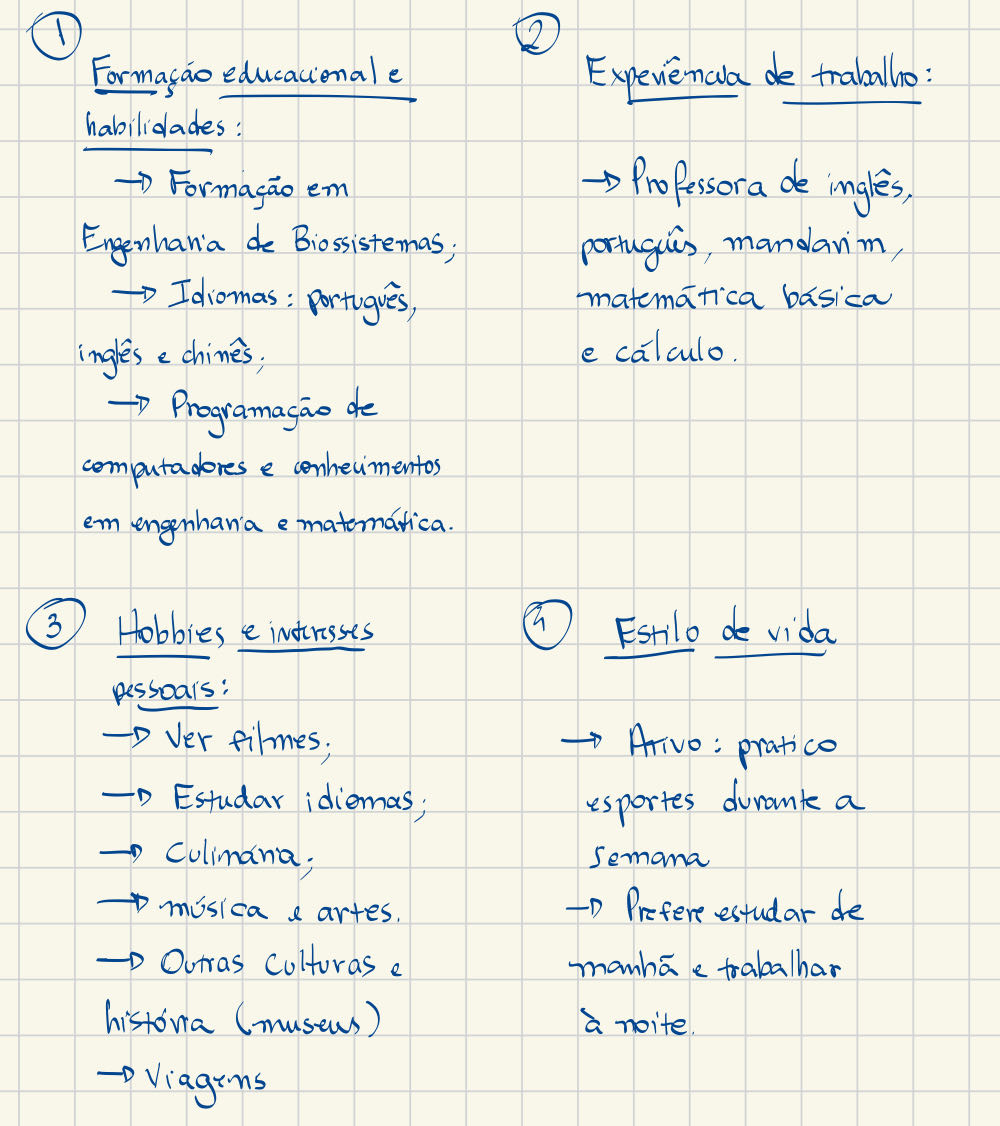 1
Formação educacional e
habilidades:
→ Formação em
Engenharia de Biossistemas;
→ Idiomas: português,
inglês e chinês;
→ Programação de
computadores e conhecimentos
em engenharia e matemática.
2
Experiência de trabalho:
→ Professora de inglês,
português, mandarim,
matemática básica
e cálculo.
3
Hobbies e interesses
pessoais:
→ Ver filmes;
→ Estudar idiomas;
→ Culinária;
→ música e artes.
→ Outras culturas e
história (museus)
→ Viagens
4
Estilo de vida
→ Ativo: pratico
esportes durante a
semana
→ Prefere estudar de
manhã e trabalhar
à noite.